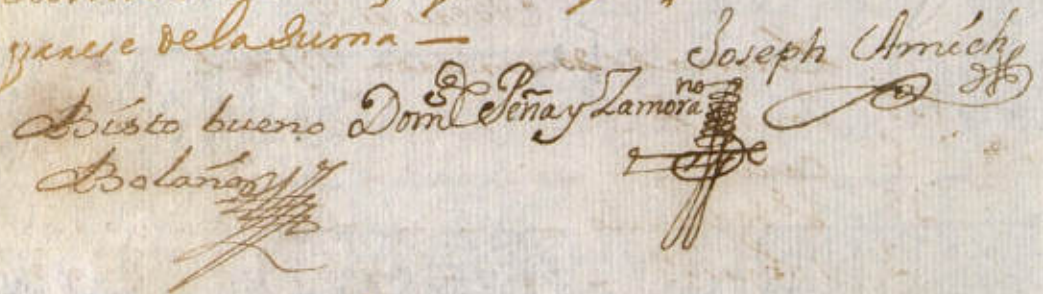 de la suma —
Joseph Amich
Bisto bueno Domgo Peña y Zamorano
Bolaños